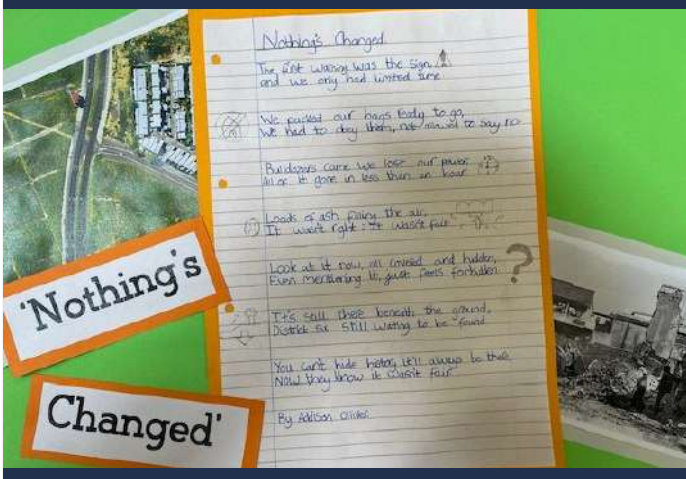 Nothing's Changed
The first warning was the sign
and we only had limited time
We packed our bags ready to go,
We had to obey them, not allowed to say no
Buldozers came we lost our power
All of it gone in less then an hour
Loads of ash filling the air,
It wasn't right : It wasn't fair
Look at it now, all covered and hidden,
Even mentioning it, just feels forbidden
?
It's still there beneath the ground,
District six still waiting to be found
You can't hide history it'll always be there
Now they know it wasn't fair
By Addison
'Nothing's
Changed'